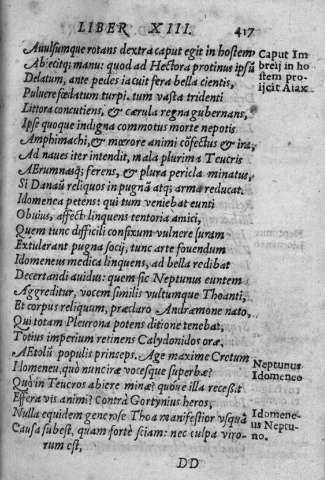 LIBER XIII. 417
Auulsumque rotans dextra caput egit in hostem
Abiecitq; manu: quod ad Hectora protinus ipsū
Delatum, ante pedes iacuit fera bella cientis,
Puluere fœdatum turpi. tum vasta tridenti
Littora concutiens, & cærula regna gubernans,
Ipse quoque indigna commotus morte nepotis
Amphimachi, & mœrore animi cōfectus & ira,
Ad naues iter intendit, mala plurima Teucris
AErumnasq; ferens, & plura pericla minatus,
Si Danaū reliquos in pugnā atq; arma reducat.
Idomenea petens: qui tum veniebat eunti
Obuius, affecti linquens tentoria amici,
Quem tunc difficili confixum vulnere suram
Extulerant pugna socij, tunc arte fouendum
Idomeneus medica linquens, ad bella redibat
Decertandi auidus: quem sic Neptunus euntem
Aggreditur, vocem similis vultumque Thoanti,
Et corpus reliquum, præclaro Andræmone nato,
Qui totam Pleurona potens ditione tenebat,
Totius imperium retinens Calydonidos oræ,
AEtolū populis princeps. Age maxime Cretum
Idomeneu, quò nunc iræ vocesque superbæ?
Quò in Teucros abiere minæ? quóue illa recessit
Effera vis animi? Contrà Gortynius heros,
Nulla equidem generose Thoa manifestior vsquā
Causa subest, quam fortè sciam: nec culpa viro-
rum est,
DD
Caput Im
breij in ho
stem pro-
ijcit Aiax
Neptunus
Idomeneo
Idomene-
us Neptu-
no.